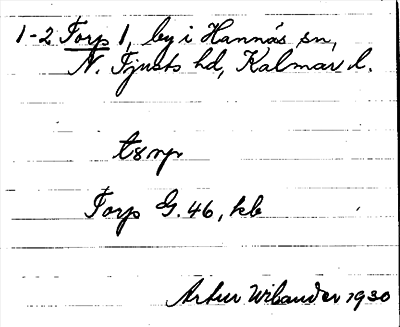 1-2 Torp 1, by i Hannäs sn,
N. Tjusts hd, Kalmar l.
tɔrp
Torp G. 46, kb
Artur Wilander 1930